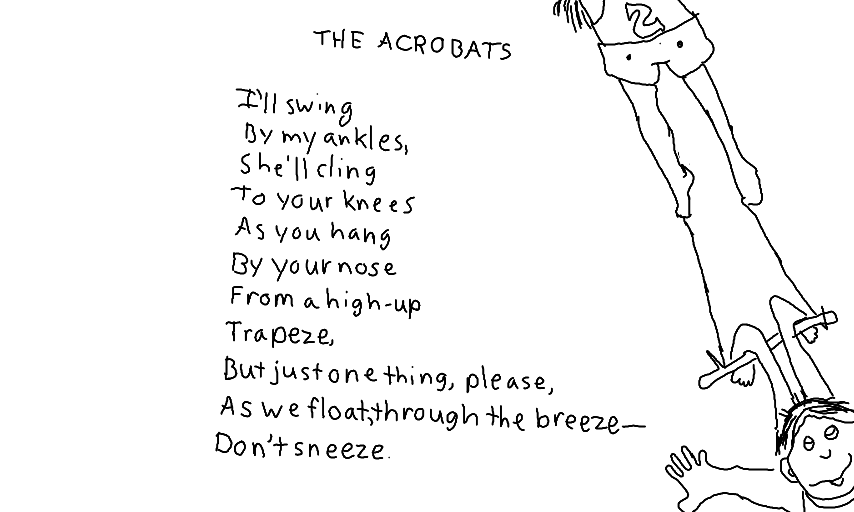 THE ACROBATS
I'll swing
By my ankles,
She'll cling
To your knees
As you hang
By your nose
From a high-up
Trapeze,
But just one thing, please,
As we float, through the breeze—
Don't sneeze.